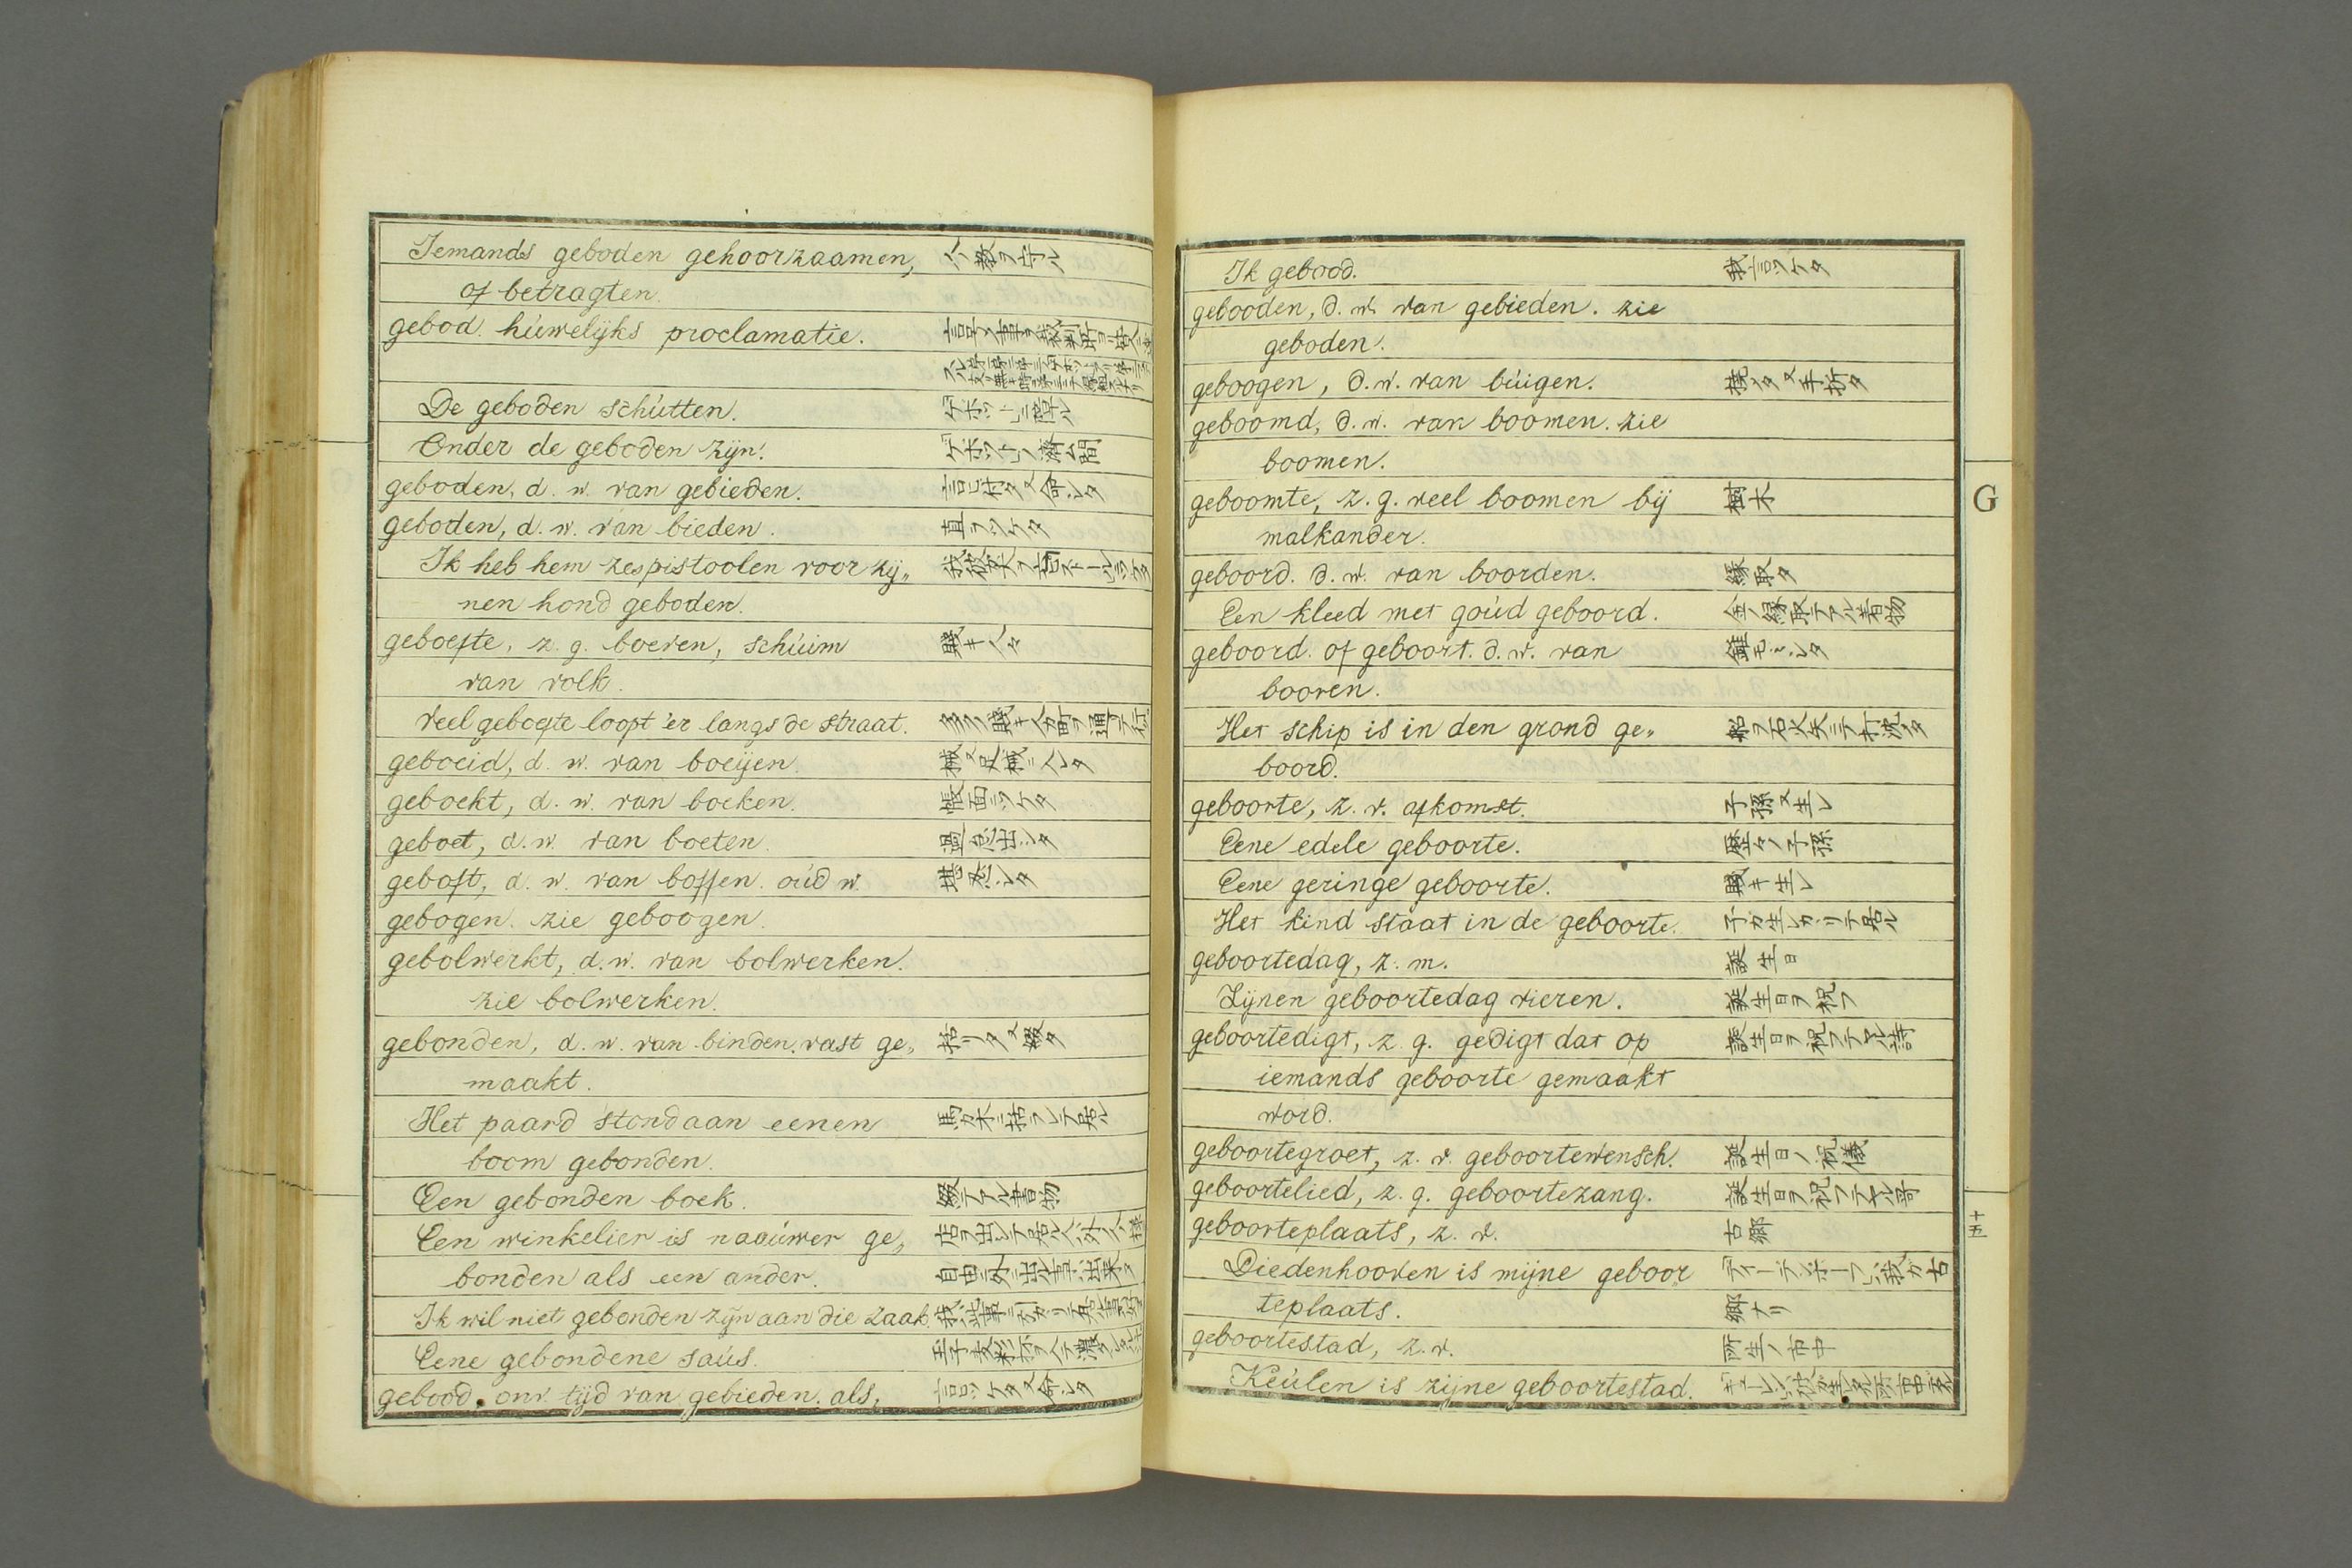 Iemands geboden gehoorzaamen, 人ノ教ヲ守ル
of betragten.
gebod. húwelijks proclamatie.
De geboden schútten.
Onder de geboden zijn.
geboden, d. w. van gebieden. 言ヒ付タ又命シタ
geboden, d. w. van bieden. 直ヲツケタ
Ik heb hem zes pistoolen voor zij„
nen hond geboden.
geboefte, z. g. boeven, schúim 賤キ人々
van volk.
Veel geboefte loopt 'er langs de straat.
geboeid, d. w. van boeijen.
geboekt, d. w. van boeken. 帳面ニツケタ
geboet, d. w. van boeten.
geboft, d. w. van boffen. oúd w. 堪忍シタ
gebogen. zie geboogen.
gebolwerkt, d. w. van bolwerken.
zie bolwerken.
gebonden, d. w. van binden. vast ge„ 括リタ又綴タ
maakt.
Het paard stond aan eenen 馬カ木ニ括ラレテ居ル
boom gebonden.
Een gebonden boek. 綴テアル書物
Een winkelier is naaúwer ge„
bonden als een ander.
Ik wil niet gebonden zijn aan die zaak.
Eene gebondene saús.
gebood. onv. tijd van gebieden. als, 言ヒツケタ又命シタ
Ik gebood. 我言ツケタ
gebooden, d. w. van gebieden. zie
geboden.
geboogen, d. w. van búigen. 撓タ又手折タ
geboomd, d. w. van boomen. zie
boomen.
geboomte, z. g. veel boomen bij 樹木
malkander.
geboord. d. w. van boorden. 縁取タ
Een kleed met goúd geboord. 金ノ縁取テアル着物
geboord. of geboort. d. w. van 錐モミシタ
booren.
Het schip is in den grond ge„ 船ヲ石火矢ニテ打沈タ
boord.
geboorte, z. v. afkomst. 子孫又生レ
Eene edele geboorte. 歴々ノ子孫
Eene geringe geboorte. 賤キ生レ
Het kind staat in de geboorte. 子カ生レカヽリテ居ル
geboortedag, z. m. 誕生日
Zijnen geboortedag vieren. 誕生日ヲ祝フ
geboortedigt, z. g. gedigt dat op 誕生日ヲ祝フテアル詩
iemands geboorte gemaakt
word.
geboortegroet, z. v. geboortewensch. 誕生日ノ祝儀
geboortelied, z. g. geboortezang. 誕生日ヲ祝フテアル哥
geboorteplaats, z. v. 古郷
Diedenhooven is mijne geboor„ 「ディーデンホーフヘン」ハ我カ古
teplaats. 郷ナリ
geboortestad, z. v. 所生ノ市中
Keúlen is zijne geboortestad.
G